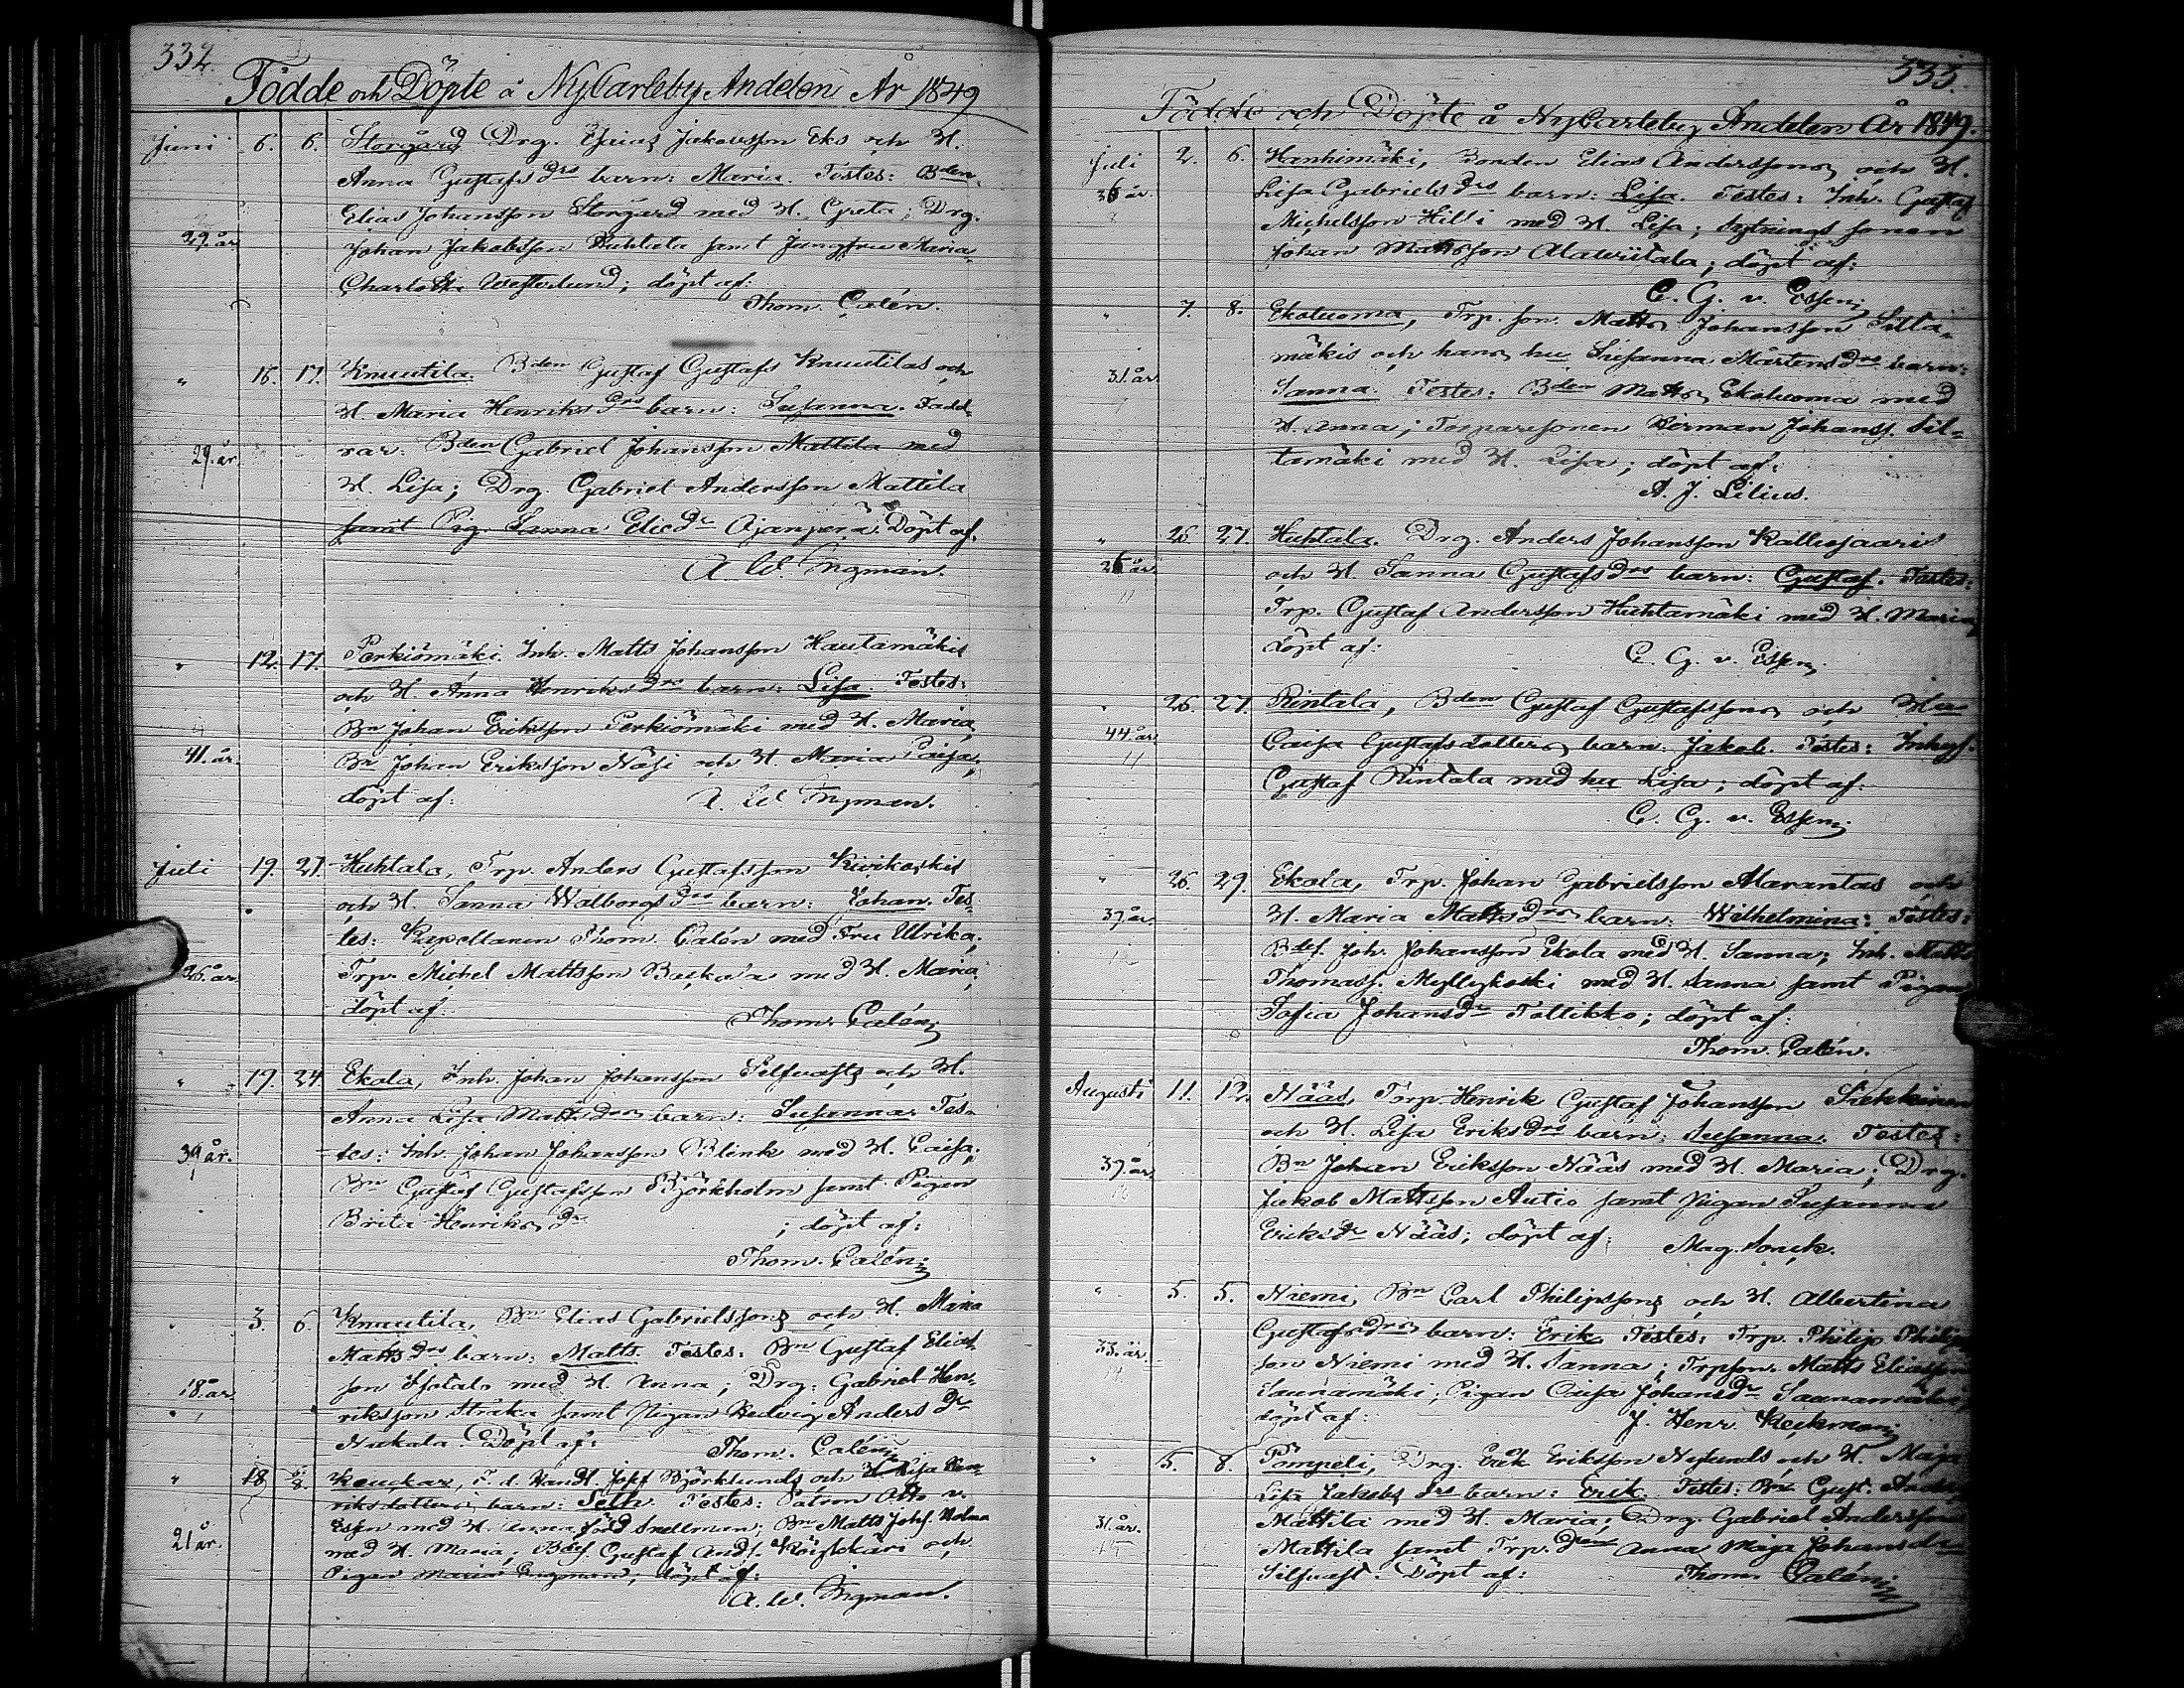 332.
Födde och Döpte å NyCarleby Andelen År 1849
Juni 6. 6. Storgård Drg. Esaias Jakobsson Eks och H.
Anna Gustafs drs barn: Maria. Testes: Bden
Elias Johansson Storgård med H. Greta; Drg.
29. år Johan Jakobsson samt Jungfru Maria
Charlotta Westerlund; döpt af:
Thom. Calén.
" 15. 17. Knuutila. Bden Gustaf Gustafs Knuutilas och
H. Maria Henriks drs barn: Susanna. Fadd-
29. år. rar: Bden Gabriel Johansson Mattila med
H. Lisa; Drg. Gabriel Andersson Mattila
samt Pig. Sanna Elie dr Ajanperä. Döpt af.
A. W. Ingman.
" 12. 17. Perkiömäki. Inh. Matts Johansson Hautamäkis
och H. Anna Henriks drs barn: Lisa. Testes:
Bn Johan Eriksson Perkiömäki med H. Maria,
41. år. Bn Johan Eriksson Näsi och H. Maria Caisa;
döpt af: A. W. Ingman.
Juli 19. 21. Huhtala, Trp. Anders Gustafsson Kivikoskis
och H. Sanna Walborgs drs barn: Johan. Tes-
tes: Kapellanen Thom. Calén med Fru Ulrika;
26. år. Trp. Michel Mattsson Backala med H. Maria;
döpt af:
Thom. Calén;
" 19. 24. Ekola, Inh. Johan Johansson Silfvasts och H.
Anna Lisa Matts drs barn: Susanna. Tes-
39 år. tes: Inh. Johan Johansson Blink med H. Caisa;
Bn Gustaf Gustafsson Björkholm samt Pigan
Brita Henriks dr ; döpt af:
Thom. Calén;
3. 6. Knuutila, Bn Elias Gabrielssons och H. Maria
Matts drs barn: Matts. Testes: Bn Gustaf Elias
18. år son Isotalo med H. Anna; Drg. Gabriel Hen-
riksson Straka samt Pigan Hedvig Anders dr
Nukala. Döpt af: Thom. Calén;
" 18 8. Keuckar, F. d. Handl. Josef Björklunds och H. Lisa Hen-
riksdotters barn: Seth. Testes: Patron Otto v.
Essen med H. Anna född Snellman; Bn Matts Johs. Holma
21 år. med H. Maria; Bdes. Gustaf Ands. och
Pigan Maria Engman; döpt af:
A. W. Ingman.
333.
Födde och Döpte å NyCarleby Andelen År 1849.
Juli 2. 6. Hanhimäki, Bonden Elias Anderssons och H.
36 år. Lisa Gabriels drs barn: Lisa. Testes: Inh. Gustaf
Michelsson Hilli med H. Lisa; Sytnings sonen
Johan Mattsson Alawiitala; döpt af:
C. G. v. Essen;
" 7. 8. Ekoluoma, Trp. son Matts Johansson Silta-
mäkis och hans hu Susanna Mårtens drs barn:
31. år Sanna. Testes: Bden Matts Ekoluoma med
H. Anna; Torparesonen Herman Johanss. Sil-
tamäki med H. Lisa; döpt af:
A. J. Lilius.
" 26. 27. Huhtala. Drg. Anders Johansson Kalliosaaris
26 år. och H. Sanna Gustafs drs barn: Gustaf. Testes:
Trp. Gustaf Andersson Huhtamäki med H. Maria;
döpt af: C. G. v. Essen;
" 26. 27. Rintala, Bden Gustaf Gustafssons och Hu
44. år Caisa Gustafsdotters barn: Jakob. Testes: Inhys.
Gustaf Rintala med hu Lisa; döpt af:
C. G. v. Essen;
" 26. 29. Ekola, Trp. Johan Gabrielsson Alarantas och
37. år. H. Maria Matts drs barn: Wilhelmina: Testes:
Bdes. Joh. Johansson Ekola med H. Sanna; Inh. Matts
Thomass. Myllykoski med H. Sanna samt Pigan
Sofia Johans dr Tollikko; döpt af:
Thom. Calén.
Augusti 11. 12. Nääs, Torp. Henrik Gustaf Johansson
och H. Lisa Eriks drs barn: Susanna. Testes:
37. år. Bn Johan Eriksson Nääs med H. Maria; Drg.
Jakob Mattsson Autio samt Pigan Susanna
Eriks dr Nääs; döpt af: Mag. Sonck.
" 5. 5. Niemi, Bn Carl Philipssons och H. Albertina
Gustafs drs barn: Erik Testes: Trp. Philip Philips
33. år. son Niemi med H. Sanna; Trpson. Matts Eliasson
Saunamäki; Pigan Caisa Johans dr Saunamäki;
döpt af: J. Henr. Keckman;
" 5. 8. Pompeli, Drg. Erik Eriksson Nylunds och H. Maja
Lisa Jakobs drs barn: Erik. Testes: Bn Gust. Anders
31. år. Mattila med H. Maria; Drg. Gabriel Andersson
Mattila samt Trp. Anna Maja Johans dr
Silfvast. Döpt af: Thom. Calén;